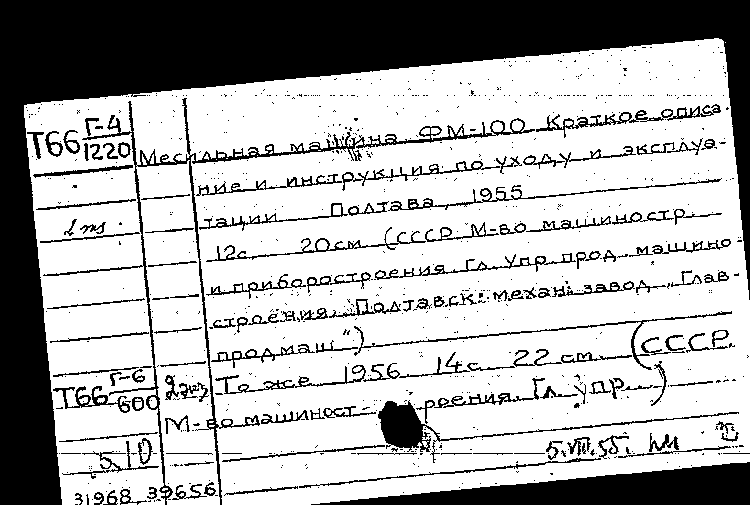 Т66 Г-4/1220
Месильная машина ФМ-100 Краткое описа-
ние и инструкция по уходу и эксплуа-
тации Полтава, 1955
12с. 20см (СССР М-во машиностр.
и приборостроения. Гл. Упр. прод. машино-
строения. Полтавск. механ. завод „Глав-
продмаш").
Т66 Г-6/600 2 экз То же 1956 14с. 22 см. (СССР.
М-во машиност роения. Гл. упр.)
5.10 5.VIII.55.
31968, 39656